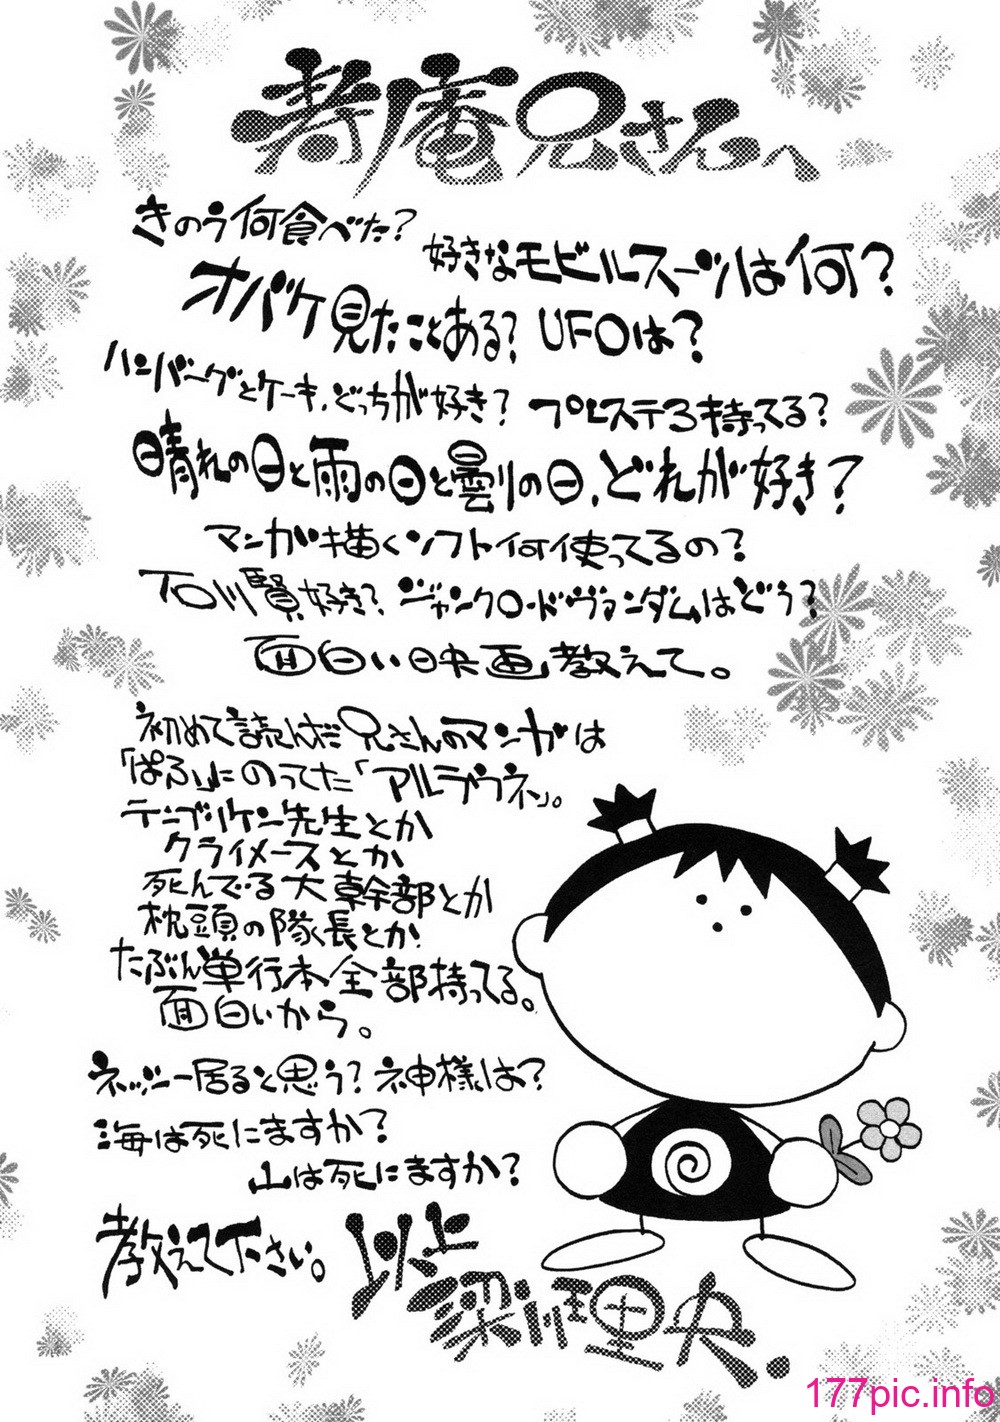 寿庵兄さんへ
きのう何食べた?
好きなモビルスーツは何?
オバケ見たことある? UFOは?
ハンバーグとケーキ、どっちが好き? プレステ3持ってる?
晴れの日と雨の日と曇りの日、どれが好き?
マンガ描くソフト何使ってるの?
石川賢好き? ジャンクロードヴァンダムはどう?
面白い映画教えて。
初めて読んだ兄さんのマンガは
「ぱふ」にのってた「アルラウネ」。
テンプリケン先生とか
クライメースとか
死んでる大幹部とか
枕頭の隊長とか
たぶん単行本全部持ってる。
面白いから。
ネッシー居ると思う? 神様は?
海は死にますか?
山は死にますか?
教えて下さい。
以上
梁川理央.
177pic.info